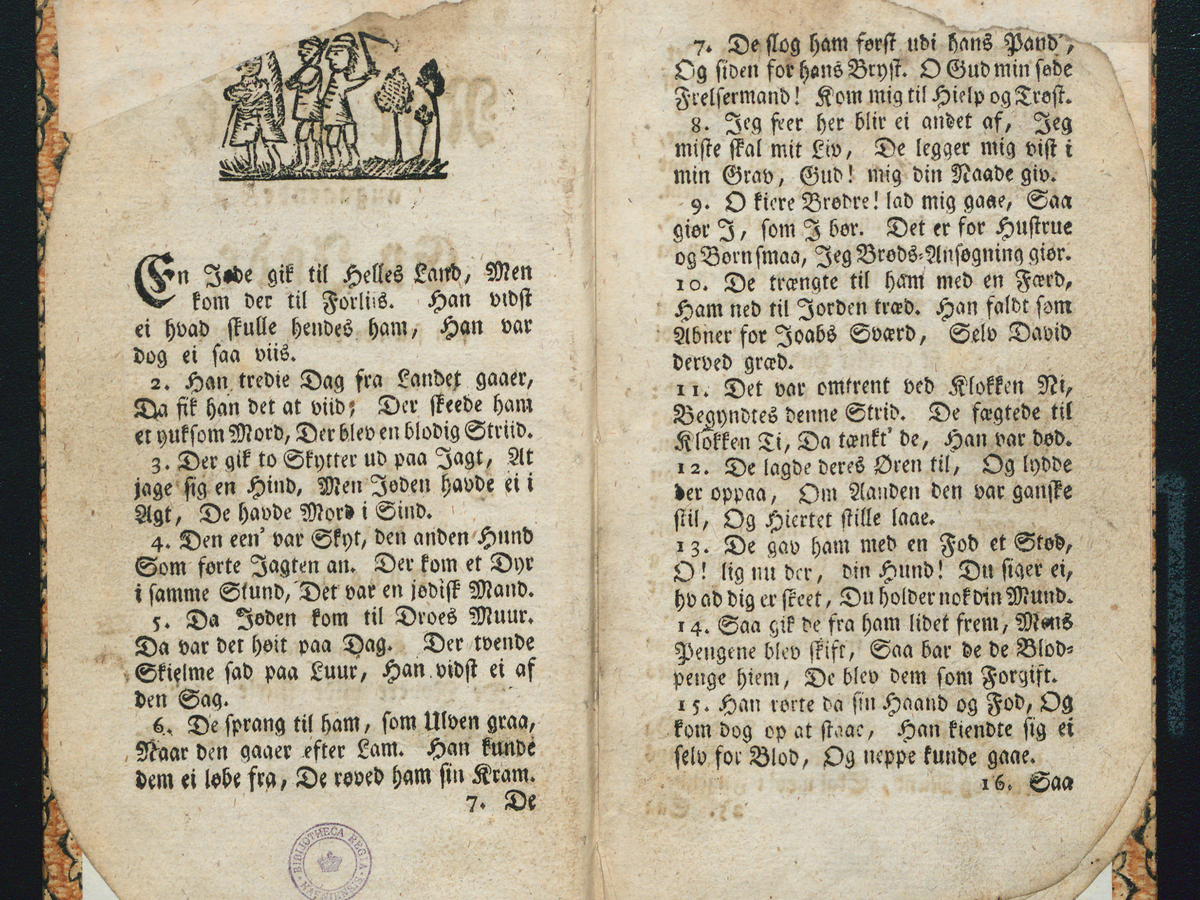 En Jøde gik til Helles Land, Men
kom der til Forliis. Han vidst
ei hvad skulle hendes ham, Han var
dog ei saa viis.
2. Han tredie Dag fra Landet gaaer,
Da fik han det at viid; Der skeede ham
et ynksom Mord, Der blev en blodig Striid.
3. Der gik to Skytter ud paa Jagt, At
jage sig en Hind, Men Jøden havde ei i
Agt, De havde Mord i Sind.
4. Den een' var Skyt, den anden Hund
Som førte Jagten an. Der kom et Dyr
i samme Stund, Det var en jødisk Mand.
5. Da Jøden kom til Droes Muur.
Da var det høit paa Dag. Der tvende
Skielme sad paa Luur, Han vidst ei af
den Sag.
6. De sprang til ham, som Ulven graa,
Naar den gaaer efter Lam. Han kunde
dem ei løbe fra, De røved ham sin Kram.
7. De
BIBLIOTHECA REGIA HAFNIENSIS
7. De slog ham først udi hans Pand',
Og siden for hans Bryst. O Gud min søde
Frelsermand! Kom mig til Hielp og Trøst.
8. Jeg seer her blir ei andet af, Jeg
miste skal mit Liv, De legger mig vist i
min Grav, Gud! mig din Naade giv.
9. O kiere Brødre! lad mig gaae, Saa
giør J, som J bør. Det er for Hustrue
og Børn smaa, Jeg Brøds-Ansøgning giør.
10. De trængte til ham med en Færd,
Ham ned til Jorden træd. Han faldt som
Abner for Joabs Sværd, Selv David
derved græd.
11. Det var omtrent ved Klokken Ni,
Begyndtes denne Strid. De fægtede til
Klokken Ti, Da tænkt' de, Han var død.
12. De lagde deres Øren til, Og lydde
der oppaa, Om Aanden den var ganske
stil, Og Hiertet stille laae.
13. De gav ham med en Fod et Stød,
O! lig nu der, din Hund! Du siger ei,
hvad dig er skeet, Du holder nok din Mund.
14. Saa gik de fra ham lidet frem, Mens
Pengene blev skift, Saa bar de de Blod-
penge hiem, De blev dem som Forgift.
15. Han rørte da sin Haand og Fod, Og
kom dog op at staae, Han kiendte sig ei
selv for Blod, Og neppe kunde gaae.
16. Saa